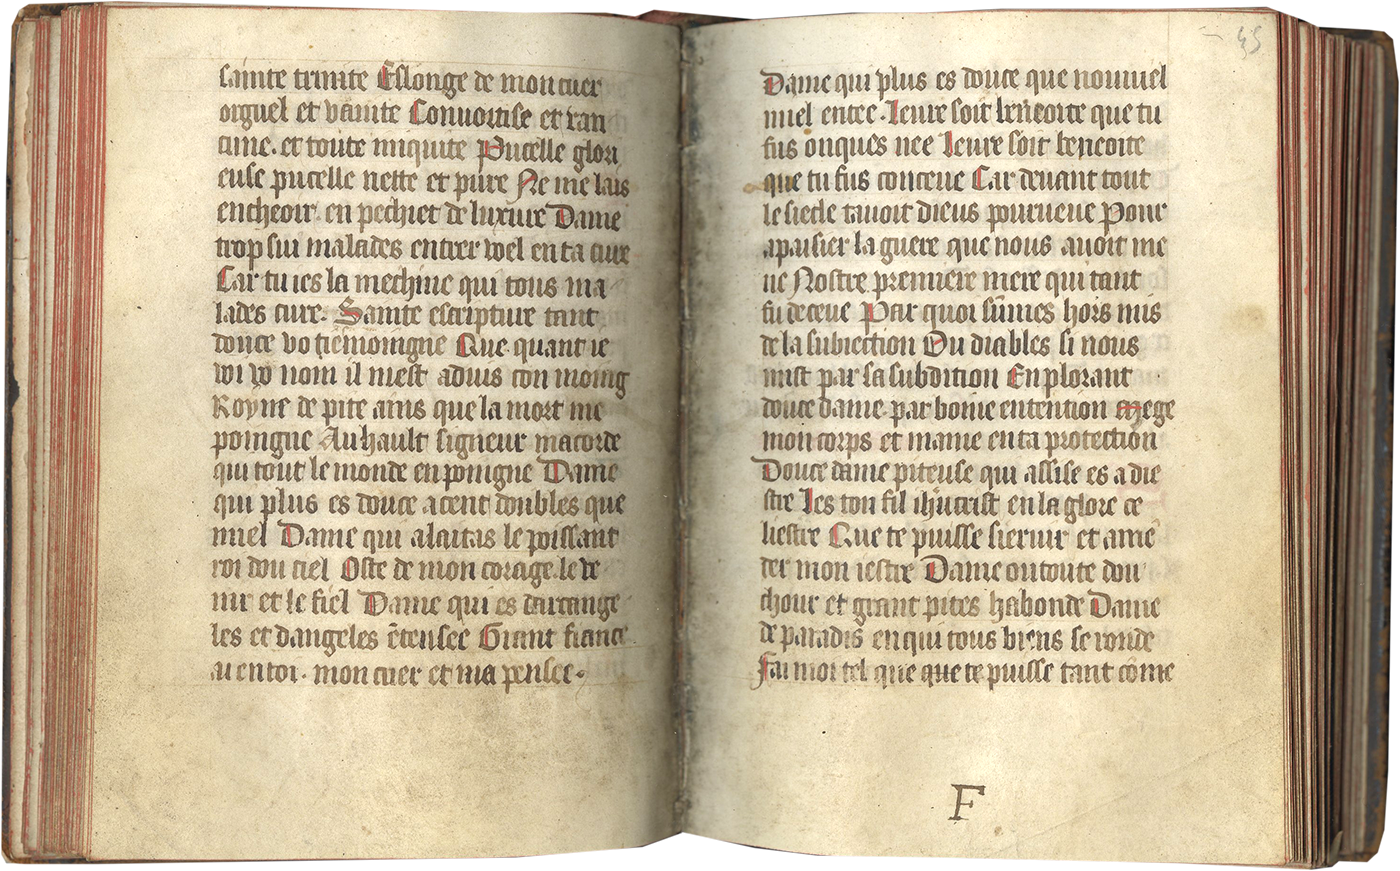 sainte trinite Eslonge de mon cuer
orguel et vanite Convoitise et ran
cune. et toute iniquite Pucelle glori
euse pucelle nette et pure Ne me lais
encheoir. en pechiet de luxure Dame
trop sui malades entrer voel en ta cure
Car tu ies la mechine qui tous ma
lades cure. Sainte escripture tant
douce vo tiesmoingne Que quant ie
voi vo nom il niest advis con moing
Royne de pite ains que la mort me
poingne Au hault signeur macorde
qui tout le monde en poingne Dame
qui plus es douce a cent doubles que
miel Dame qui alaitas le poissant
roi dou ciel Oste de mon corage. le ve
nir et le fiel Dame qui es darcange
les et dangeles ētensee Grant fiance
ai en toi. mon cuer et ma pensee.
45
Dame qui plus es douce que nouuiel
miel entee. Ieure soit beneoite que tu
fus onques nee Ieure soit beneoite
que tu fus conceue Car devant tout
le siecle tavoit dieus pourueue Pour
apaisier la guere que nous avoit me
ue Nostre premiere mere qui tant
fu deceue Par quoi sūmes hors mis
de la subiection Du diables si nous
mist par sa subdition En plorant
douce dame. par boine entention Mege
mon corps et mame en ta protection
Douce dame piteuse qui assise es a die
stre Les ton fil ihūcrist en la glore ce
liestre Que te puisse siervir et ame
der mon iestre Dame ou toute dou
chour et grant pites habonde Dame
de paradis en qui tous biens se ronde
Fai moi tel que que te puisse tant come
F